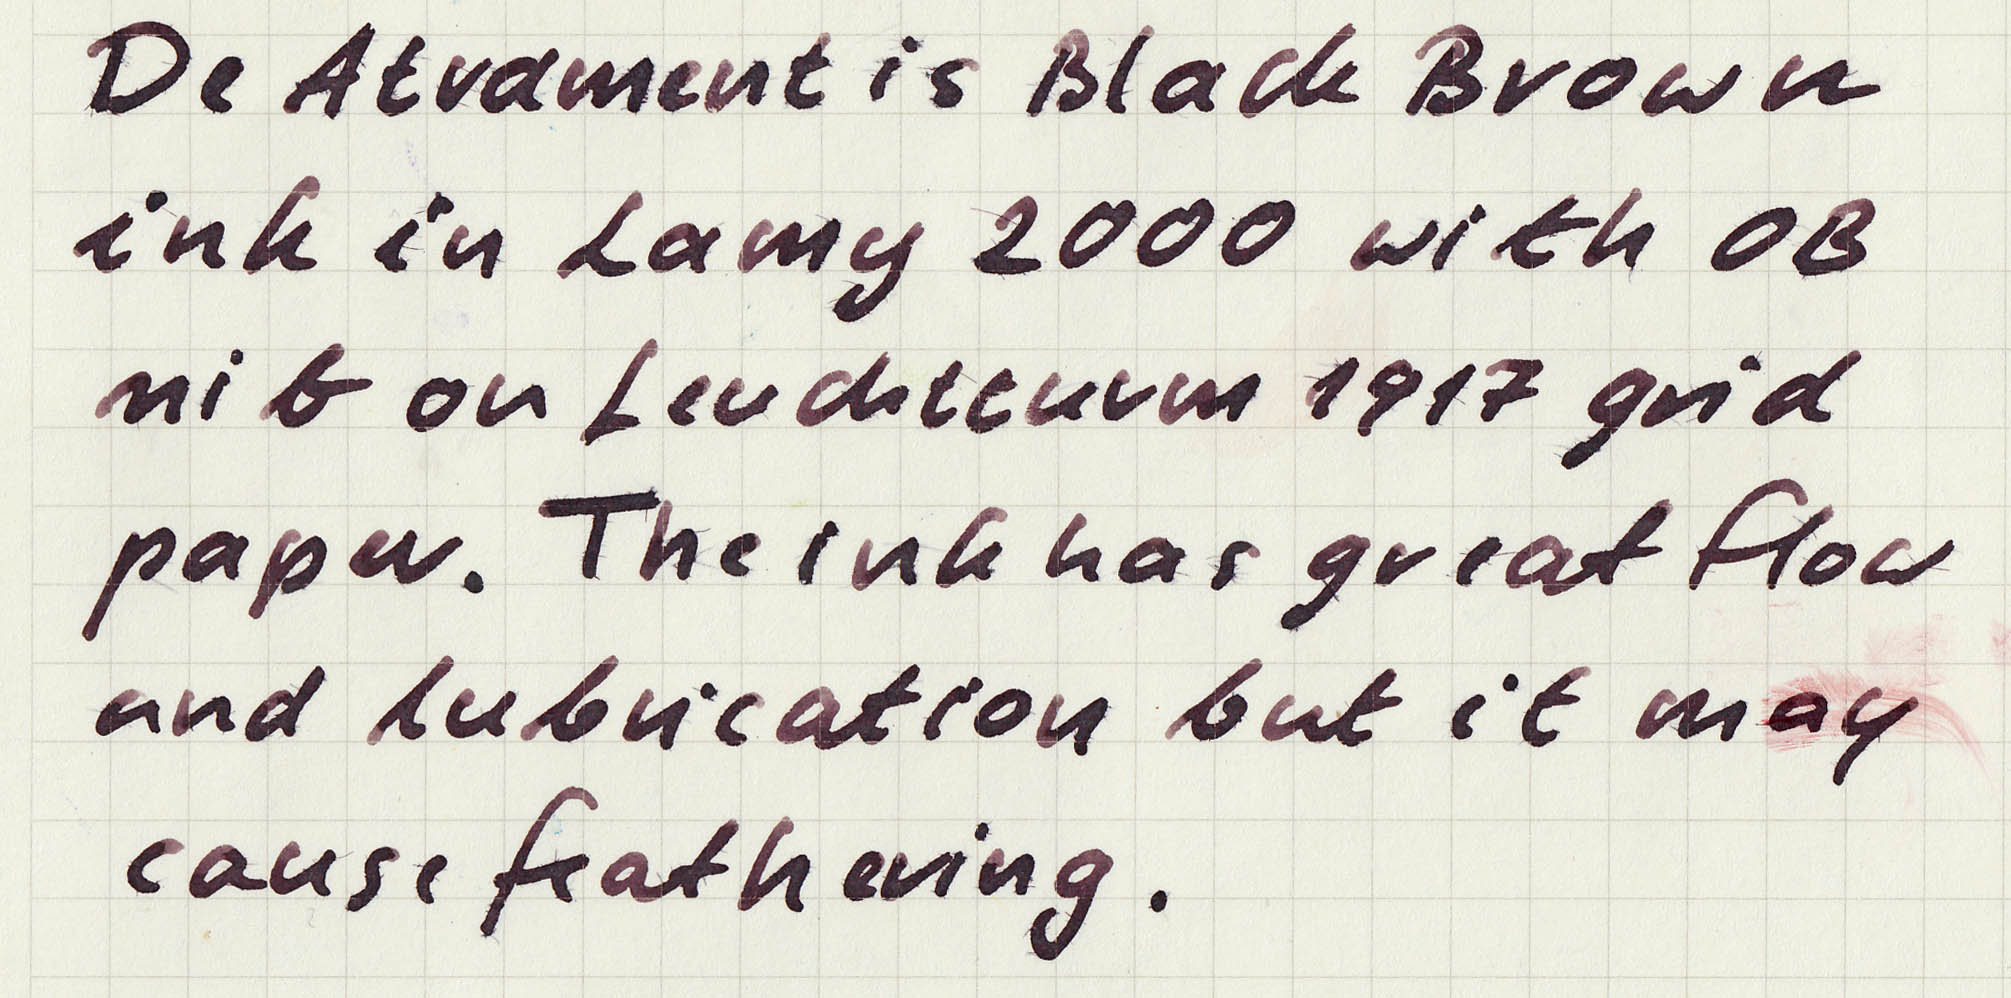 De Atrament is Black Brown
ink in Lamy 2000 with OB
nib on Leuchtturm 1917 grid
paper. The ink has great flow
and lubrication but it may
cause feathering.